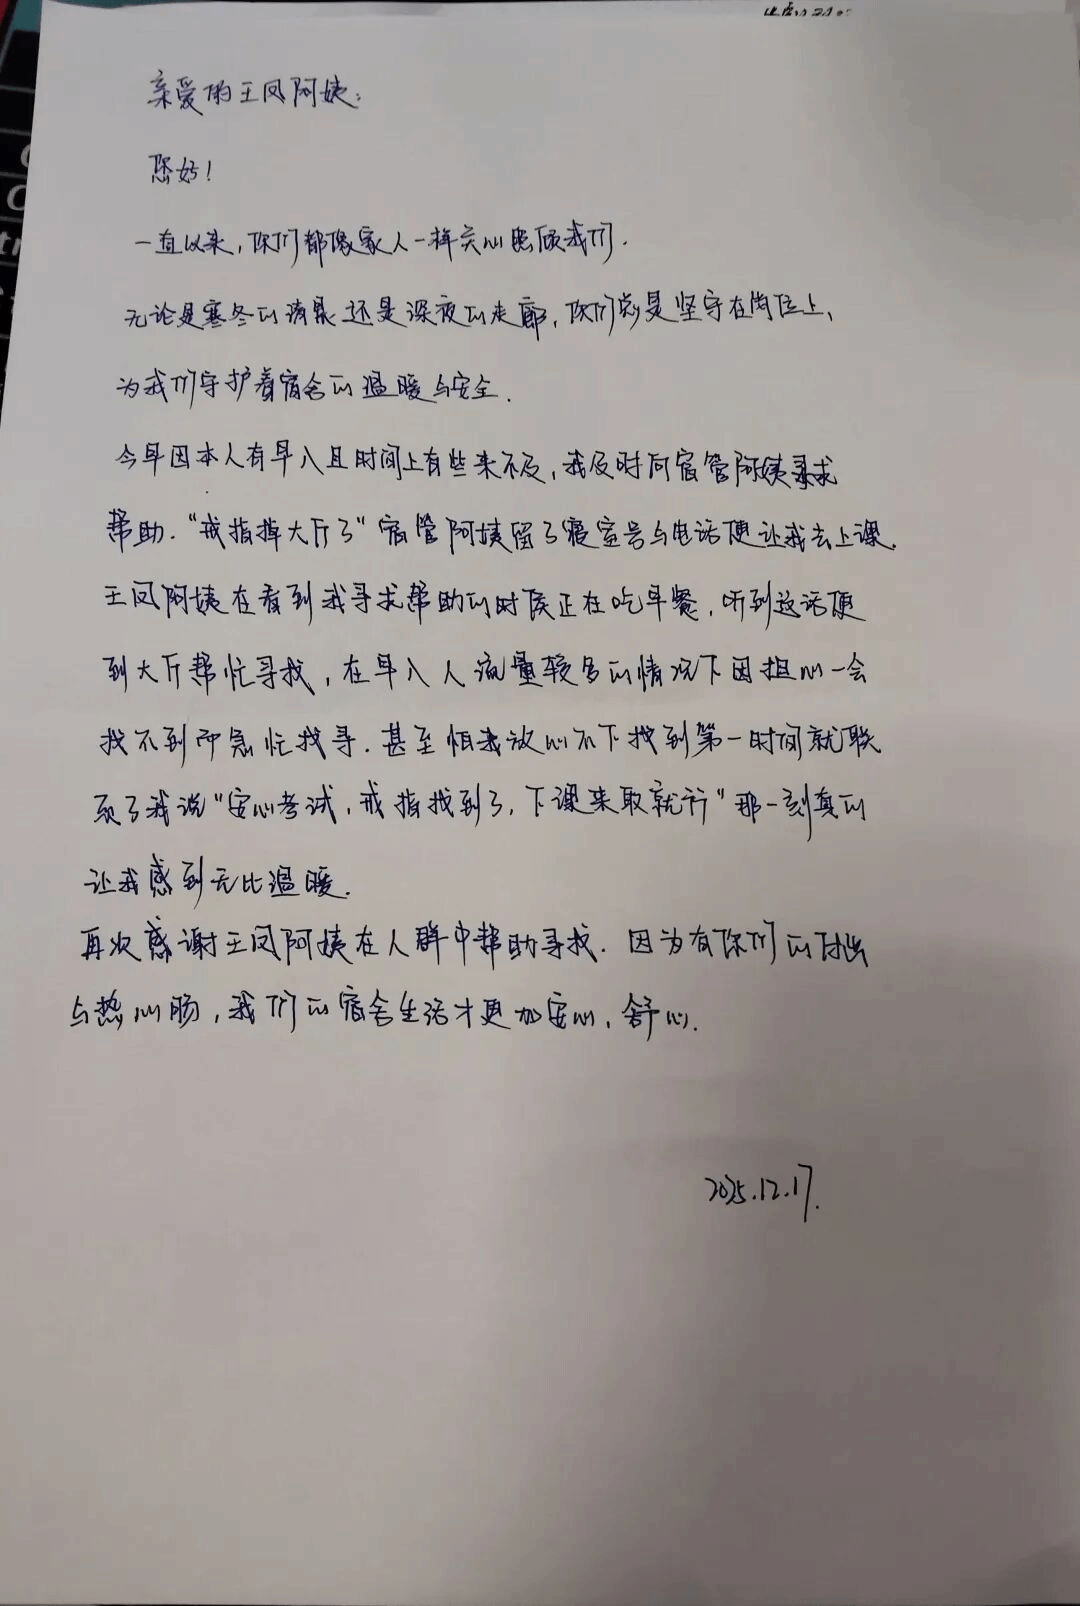 亲爱的王凤阿姨:
您好!
一直以来,你们都像家人一样关心照顾我们.
无论是寒冬的清晨还是深夜的走廊,你们总是坚守在岗位上,
为我们守护着宿舍的温暖与安全.
今早因本人有早八且时间上有些来不及,我及时向宿管阿姨寻求
帮助.“戒指掉大厅了”宿管阿姨留了寝室号与电话便让我去上课.
王凤阿姨在看到我寻求帮助的时候正在吃早餐,听到这话便
到大厅帮忙寻找,在早八人流量较多的情况下因担心一会
找不到而急忙找寻.甚至怕我放心不下找到第一时间就联
系了我说“安心考试,戒指找到了,下课来取就行”那一刻真的
让我感到无比温暖.
再次感谢王凤阿姨在人群中帮助寻找.因为有你们的付出
与热心肠,我们的宿舍生活才更加安心、舒心.
2025.12.17.